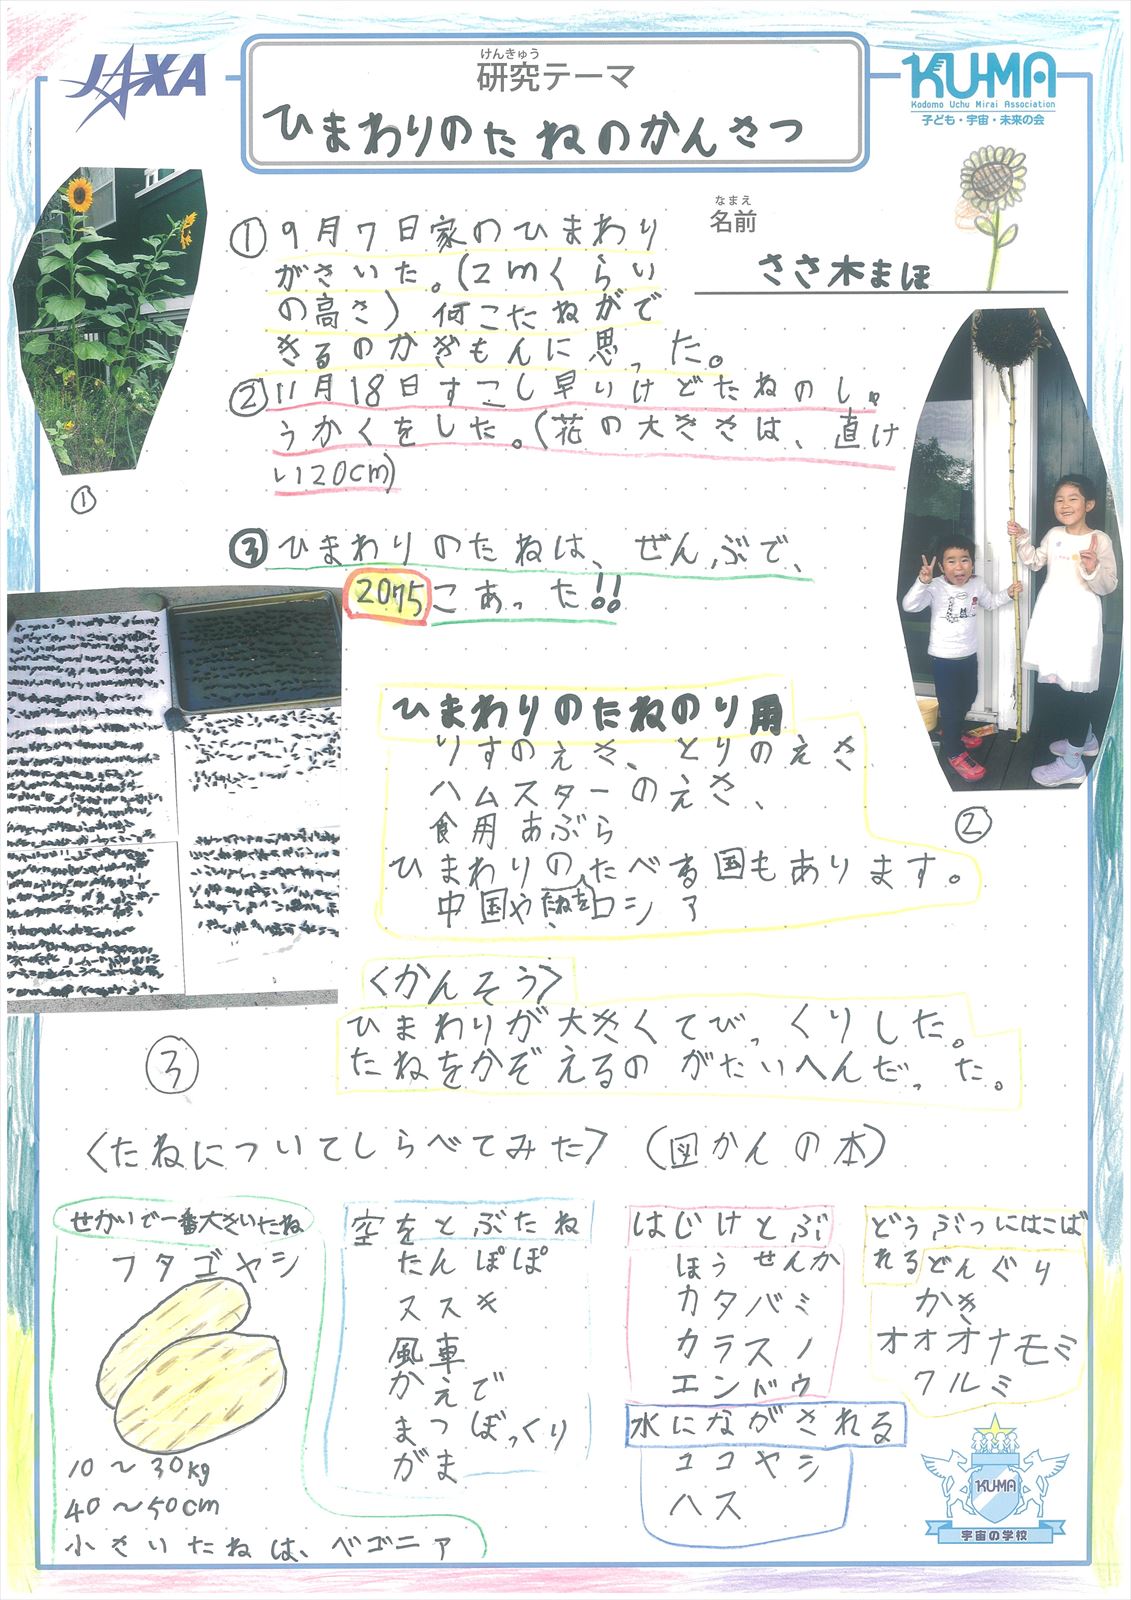 JAXA
けんきゅう
研究テーマ
ひまわりのたねのかんさつ
KUMA
Kodomo Uchu Mirai Association
子ども・宇宙・未来の会
なまえ
名前
ささ木まほ
①9月7日家のひまわり
がさいた。(2mくらい
の高さ)何こたねがで
きるのかぎもんに思った。
②11月18日すこし早いけどたねのしゅ
うかくをした。(花の大きさは、直け
い20cm)
①
③ひまわりのたねは、ぜんぶで、
2075こあった!!
②
ひまわりのたねのり用
りすのえさ、とりのえさ
ハムスターのえさ、
食用あぶら
ひまわりのたねをたべる国もあります。
中国やロシア
③
<かんそう>
ひまわりが大きくてびっくりした。
たねをかぞえるのがたいへんだった。
<たねについてしらべてみた>(図かんの本)
せかいで一番大きいたね
フタゴヤシ
10~30kg
40~50cm
小さいたねは、ベゴニア
空をとぶたね
たんぽぽ
ススキ
風車
かえで
まつぼっくり
がま
はじけとぶ
ほうせんか
カタバミ
カラスノ
エンドウ
水にながされる
ココヤシ
ハス
どうぶつにはこば
れるどんぐり
かき
オオオナモミ
クルミ
KUMA
宇宙の学校